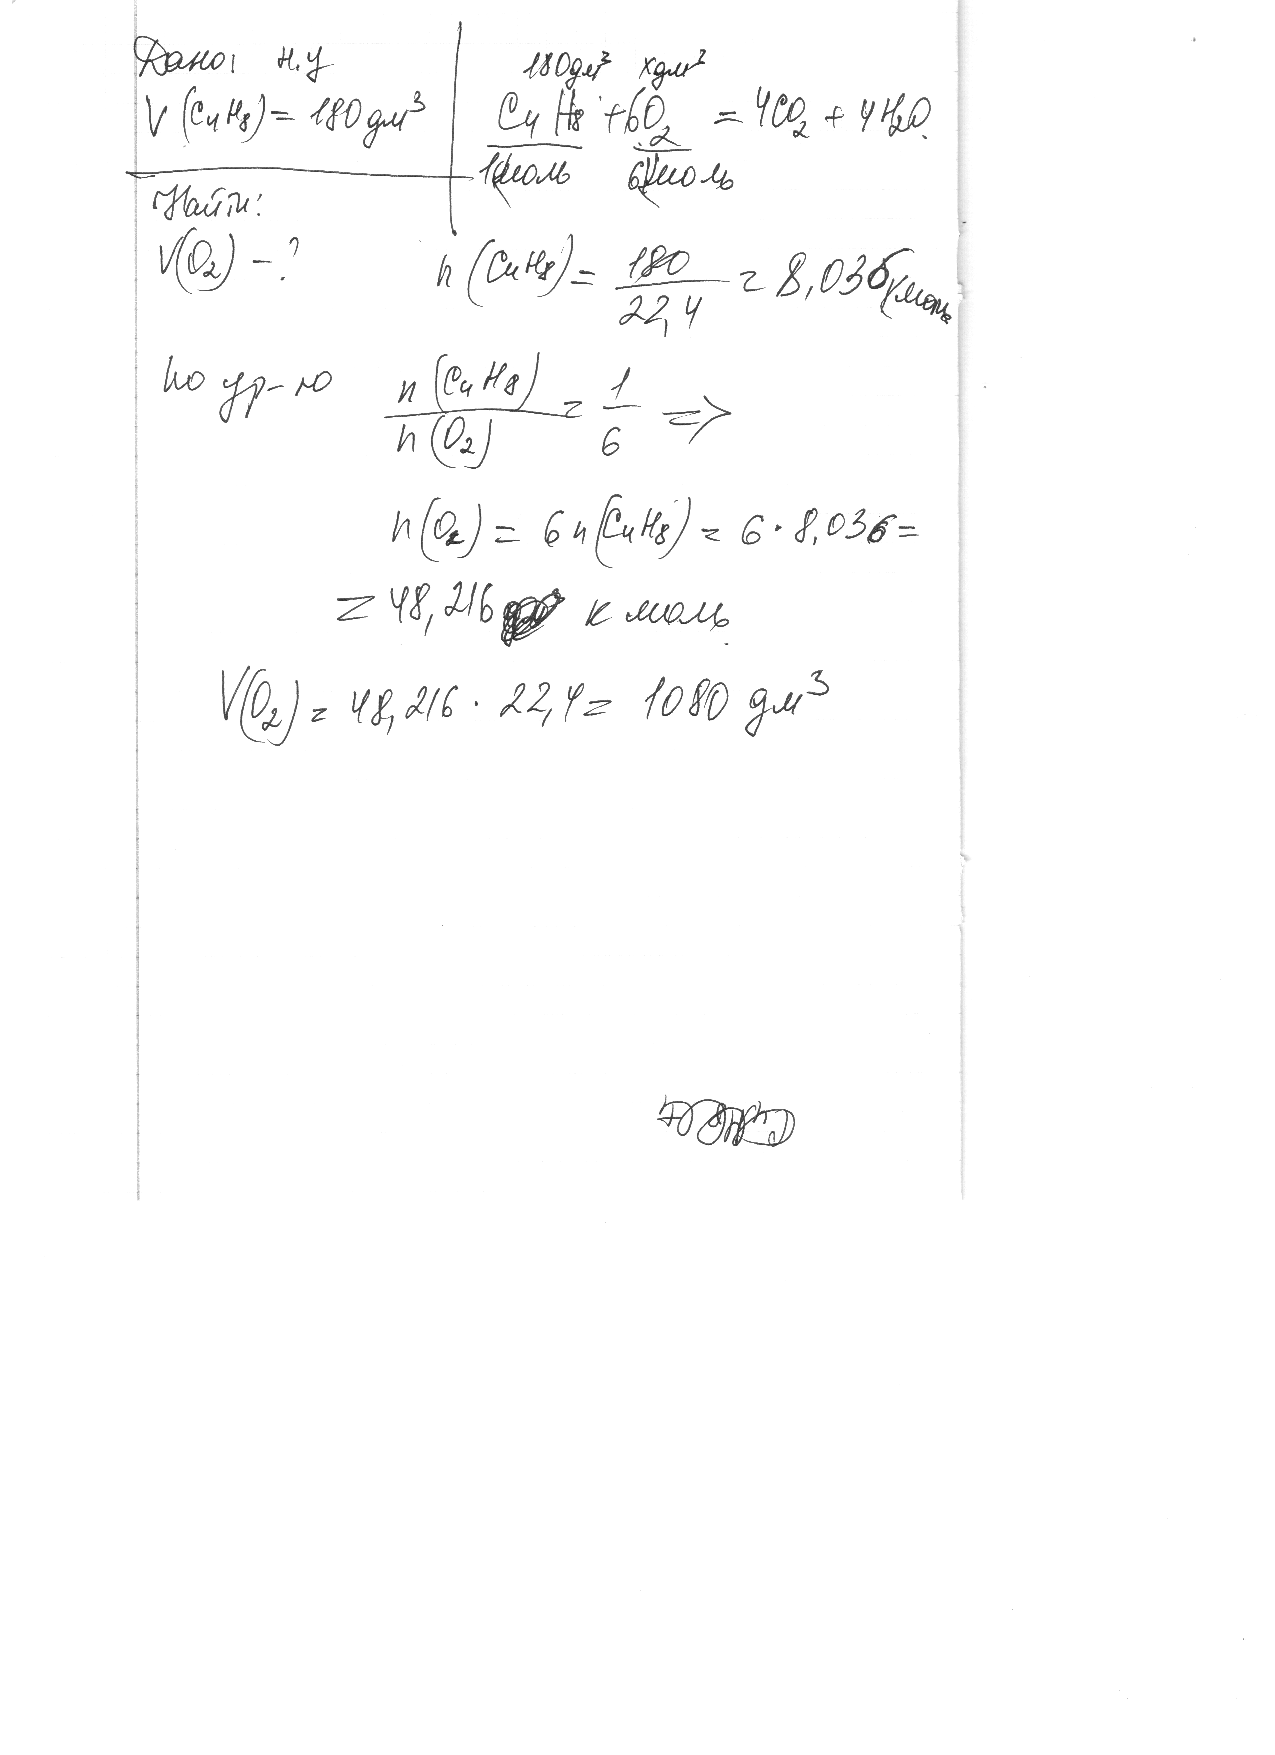 Дано: н.у
V (C4H8) = 180 дм³
180 дм³ x дм³
C4H8 + 6O2 = 4CO2 + 4H2O
1кмоль 6кмоль
Найти:
V(O2) - ?
n (C4H8) = 180/22,4 = 8,036 кмоль
по ур-ю n (C4H8) / n (O2) = 1/6 =>
n(O2) = 6 n (C4H8) = 6 · 8,036 =
= 48,216 кмоль
V(O2) = 48,216 · 22,4 = 1080 дм³